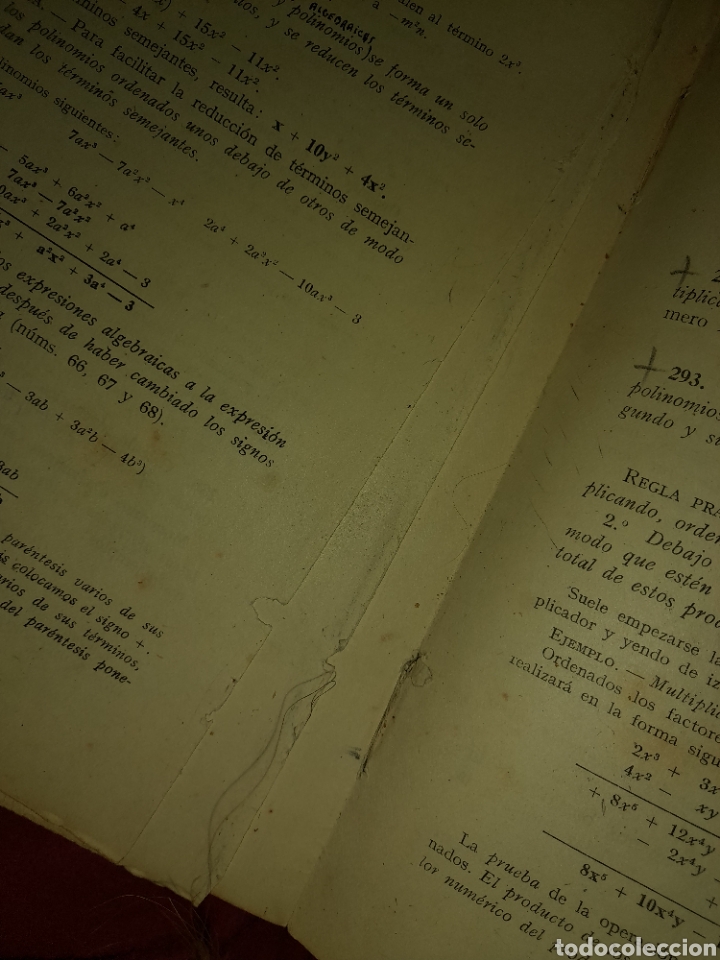 alen al término 2x³.
a — m²n.
ALGEBRAICAS
polinomios) se forma un solo
y se reducen los términos se-
) + 15x² — 11x².
— 4x + 15x² — 11x².
— Para facilitar la reducción de términos semejan-
términos semejantes, resulta: x + 10y² + 4x².
los polinomios ordenados unos debajo de otros de modo
dan los términos semejantes.
siguientes:
7ax³ — 7a²x² — x⁴ 2a⁴ + 2a²x² — 10ax³ — 3
5ax³ + 6a²x² + a⁴
7ax³ — 7a²x²
+ 2a²x² + 2a⁴ — 3
+ a²x² + 3a⁴ — 3
expresiones algebraicas a la expresión
después de haber cambiado los signos
(núms. 66, 67 y 68).
— 3ab + 3a²b — 4b³)
3ab
paréntesis varios de sus
colocamos el signo + .—
de sus términos,
del paréntesis pone-
+ 2
tiplica
mero
+ 293.
polinomios
gundo y su
REGLA PRÁ
plicando, orden
2.º Debajo
modo que estén
total de estos prod
Suele empezarse la
plicador y yendo de iz
EJEMPLO. — Multiplic
Ordenados los factore
realizará en la forma sigu
2x³ + 3x
4x² — xy
+ 8x⁵ + 12x⁴y
— 2x⁴y —
+
8x⁵ + 10x⁴y —
La prueba de la opera
nados. El producto d
lor numérico del
todocoleccion.net